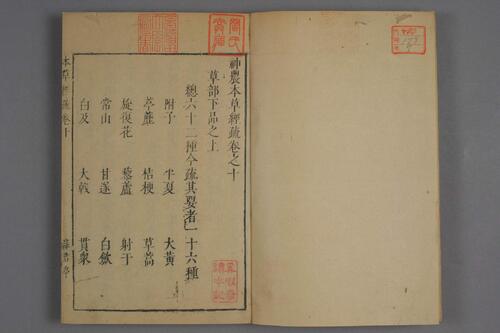 神農本草經疏卷之十
草部下品之上
總六十二種今疏其要者一十六種
附子 半夏 大黃
葶藶 桔梗 草蒿
旋復花 藜蘆 射干
常山 甘遂 白歛
白及 大戟 貫衆
本草經疏卷十